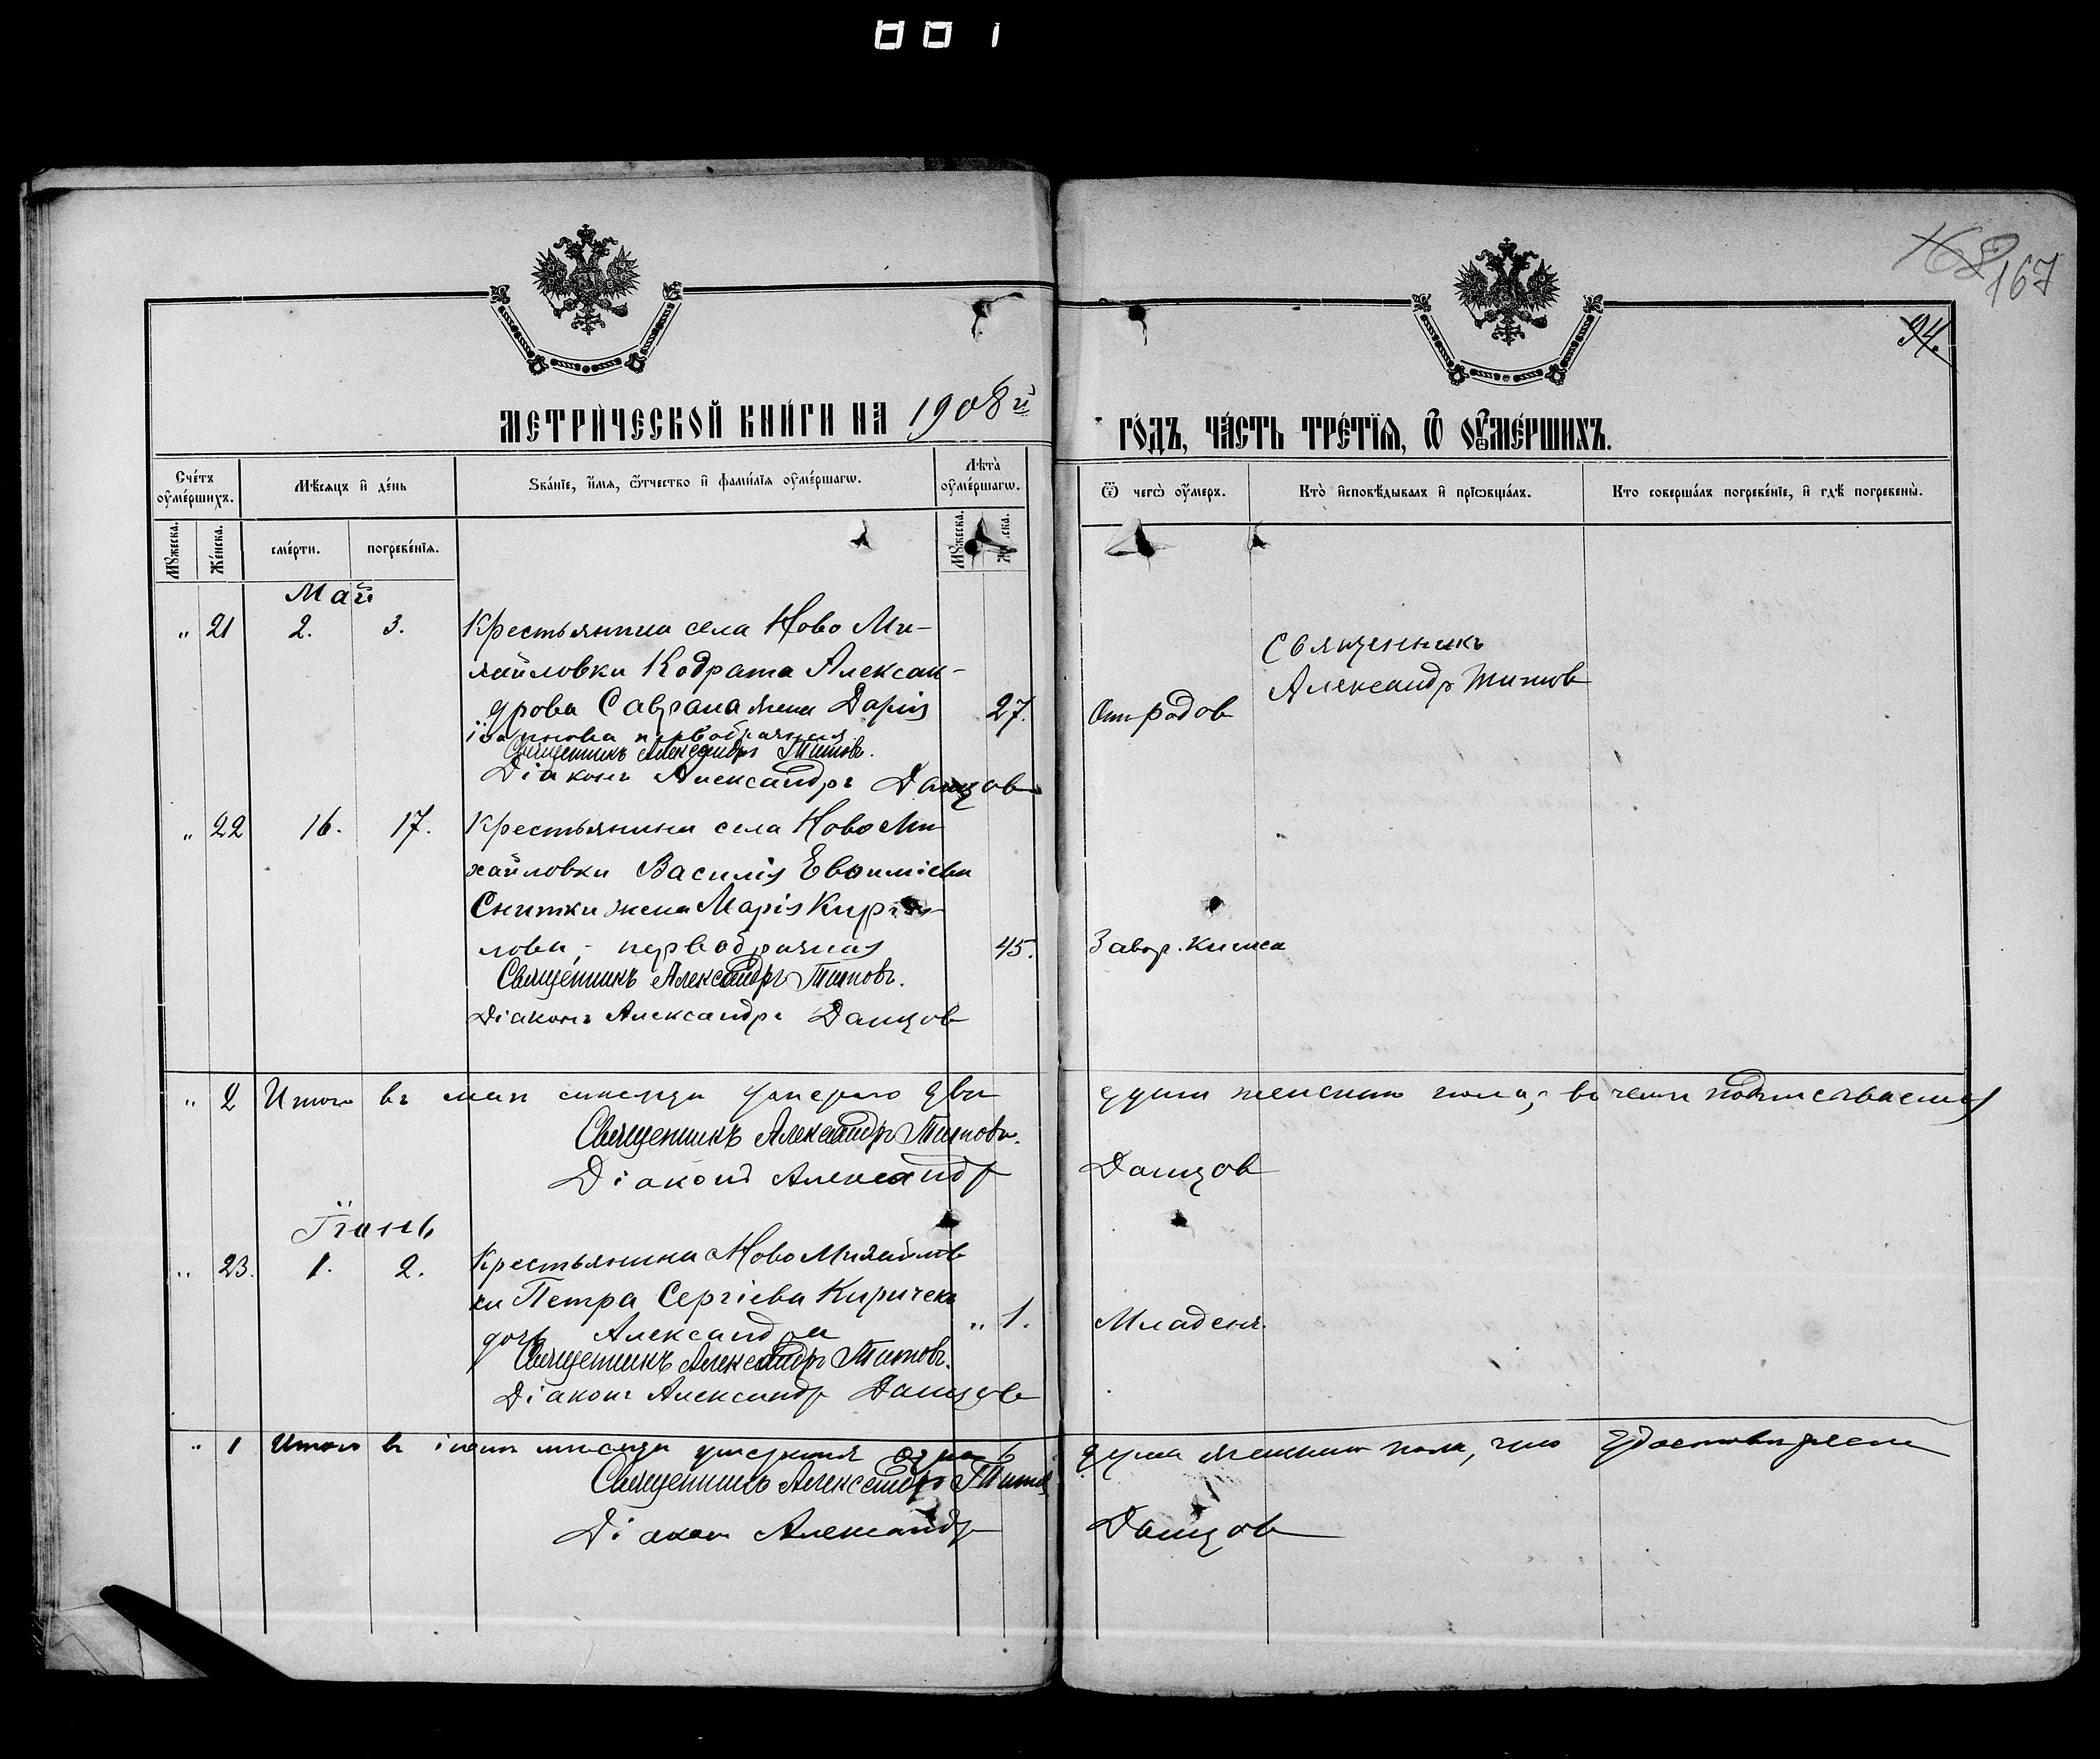 168 167
94.
МЕТРИ́ЧЕСКОЙ КНИ́ГИ НА 1908й ГО́ДЪ, ЧА́СТЬ ТРЕ́ТЇѦ, Ѽ ОУ҆МЕ́РШИХЪ.
Сче́тъ оу҆ме́ршихъ.
Мѣ́сяцъ и҆ де́нь
Зва́нїе, и҆́мя, ѻ҆́тчество и҆ фами́лїя оу҆ме́ршагѡ.
Лѣ́та оу҆ме́ршагѡ.
Ѿ чегѡ̀ оу҆́меръ.
Кто̀ и҆сповѣ́дывалъ и҆ прїѡбща́лъ.
Кто соверша́лъ погребе́нїе, и҆ гдѣ̀ погребены̀.
Мꙋ́жеска.
Же́нска.
сме́рти.
погребе́нїя.
Мꙋ́жеска.
Май
" 21 2. 3. Крестьянина села Ново Ми-
хайловки Кодрата Алексан-
дрова Саврана жена Дарія 27. От родов
первобрачная
Священникъ Александръ Титовъ.
Діаконъ Александръ Данцов
Священникъ
Александръ Титов
" 22 16. 17. Крестьянина села Ново Ми
хайловки Василія Евѳиміева
Снитки жена Марія Кирил-
лова, первобрачная 45. Завор. кишек
Священникъ Александръ Титовъ.
Діаконъ Александръ Данцов
" 2 Итого въ маи месяце умерло две души женскаго пола, в чем подписываемся
Священникъ Александръ Титовъ.
Діаконъ Александр Данцов
Іюнь
" 23. 1. 2. Крестьянина Ново Михайлов
ки Петра Сергіева Киричека
дочь Александра " 1. Младенч.
Священникъ Александръ Титовъ.
Діаконъ Александр Данцов
" 1 Итого в іюне месяце умерших одна душа женскаго пола, что удостоверяем
Священникъ Александръ Титов
Діакон Александр Данцов